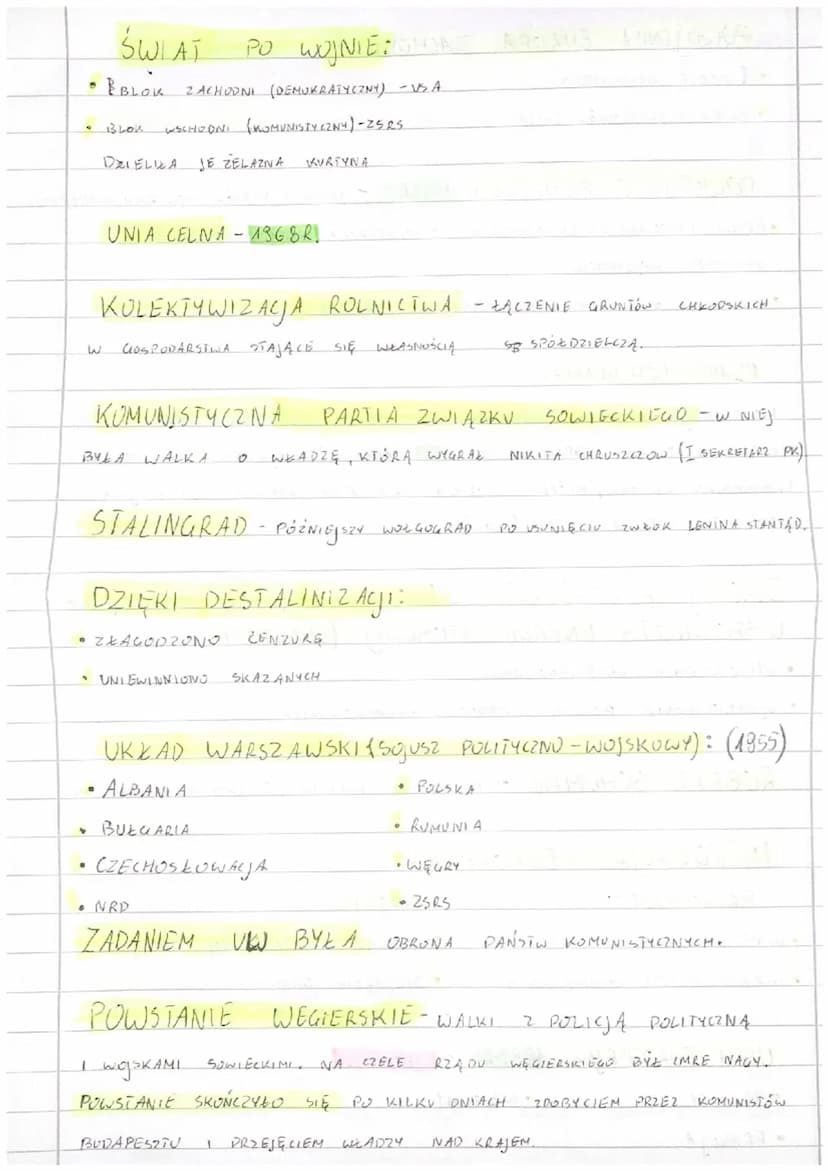 ŚWIAT PO WOJNIE:
• BLOK ZACHODNI (DEMOKRATYCZNY) - USA
• BLOK WSCHODNI (KOMUNISTYCZNY) - ZSRS
DZIELIŁA JE ŻELAZNA KURTYNA
UNIA CELNA - 1968R.
KOLEKTYWIZACJA ROLNICTWA - ŁĄCZENIE GRUNTÓW CHŁOPSKICH
W GOSPODARSTWA STAJĄCE SIĘ WŁASNOŚCIĄ SPÓŁDZIELCZĄ.
KOMUNISTYCZNA PARTIA ZWIĄZKU SOWIECKIEGO - W NIEJ
BYŁA WALKA O WŁADZĘ, KTÓRĄ WYGRAŁ NIKITA CHRUSZCZOW (I SEKRETARZ PK)
STALINGRAD - PÓŹNIEJSZY WOŁGOGRAD PO USUNIĘCIU ZWŁOK LENINA STAMTĄD.
DZIĘKI DESTALINIZACJI:
• ZŁAGODZONO CENZURĘ
• UNIEWINNIONO SKAZANYCH
UKŁAD WARSZAWSKI (SOJUSZ POLITYCZNO - WOJSKOWY): (1955)
• ALBANIA • POLSKA
• BUŁGARIA • RUMUNIA
• CZECHOSŁOWACJA • WĘGRY
• NRD • ZSRS
ZADANIEM UW BYŁA OBRONA PAŃSTW KOMUNISTYCZNYCH.
POWSTANIE WĘGIERSKIE - WALKI Z POLICJĄ POLITYCZNĄ
I WOJSKAMI SOWIECKIMI. NA CZELE RZĄDU WĘGIERSKIEGO BYŁ IMRE NAGY.
POWSTANIE SKOŃCZYŁO SIĘ PO KILKU DNIACH ZDOBYCIEM PRZEZ KOMUNISTÓW
BUDAPESZTU I PRZEJĘCIEM WŁADZY NAD KRAJEM.